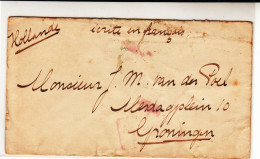 Hollande
écrite en français
Monsieur J. M. van der Poel
Mesdagplein 10
Groningen